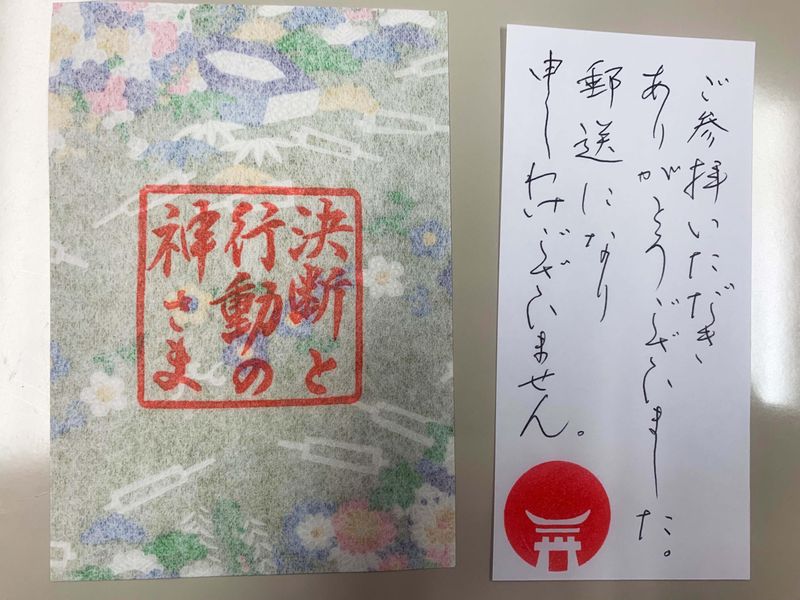 決断と
行動の
神さま
ご参拝いただき、
ありがとうございました。
郵送になり
申しわけございません。